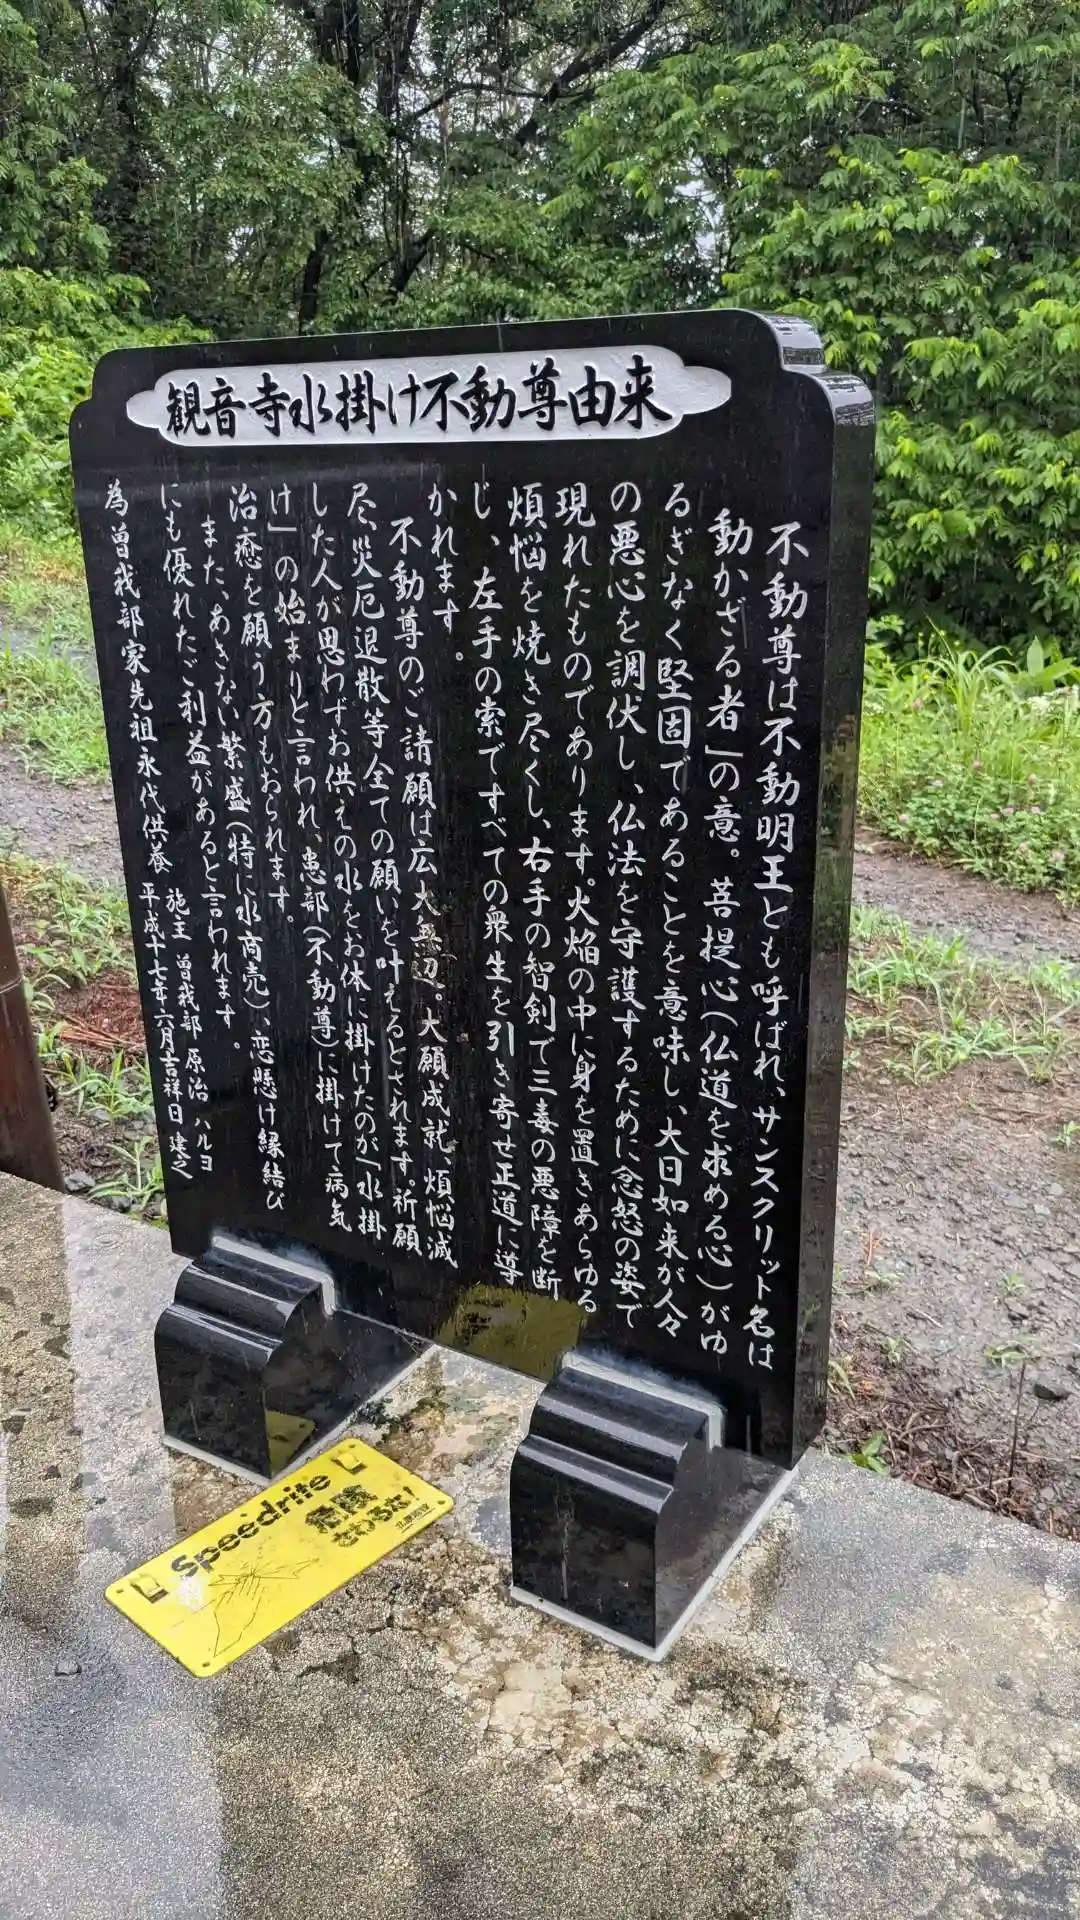 観音寺水掛け不動尊由来
不動尊は不動明王とも呼ばれ、サンスクリット名は
動かざる者」の意。菩提心(仏道を求める心)がゆ
るぎなく堅固であることを意味し、大日如来が人々
の悪心を調伏し、仏法を守護するために忿怒の姿で
現れたものであります。火焔の中に身を置きあらゆる
煩悩を焼き尽くし、右手の智剣で三毒の悪障を断
じ、左手の索ですべての衆生を引き寄せ正道に導
かれます。
不動尊のご請願は広大無辺。大願成就煩悩滅
尽、災厄退散等全ての願いを叶えるとされます。祈願
した人が思わずお供えの水をお体に掛けたのが「水掛
け」の始まりと言われ、患部(不動尊)に掛けて病気
治癒を願う方もおられます。
また、あきない繁盛(特に水商売)、恋懸け縁結び
にも優れたご利益があると言われます。
為曽我部家先祖永代供養
施主 曽我部 原治 ハルヨ
平成十七年六月吉祥日 建之
Speedrite
危険
さわるな!